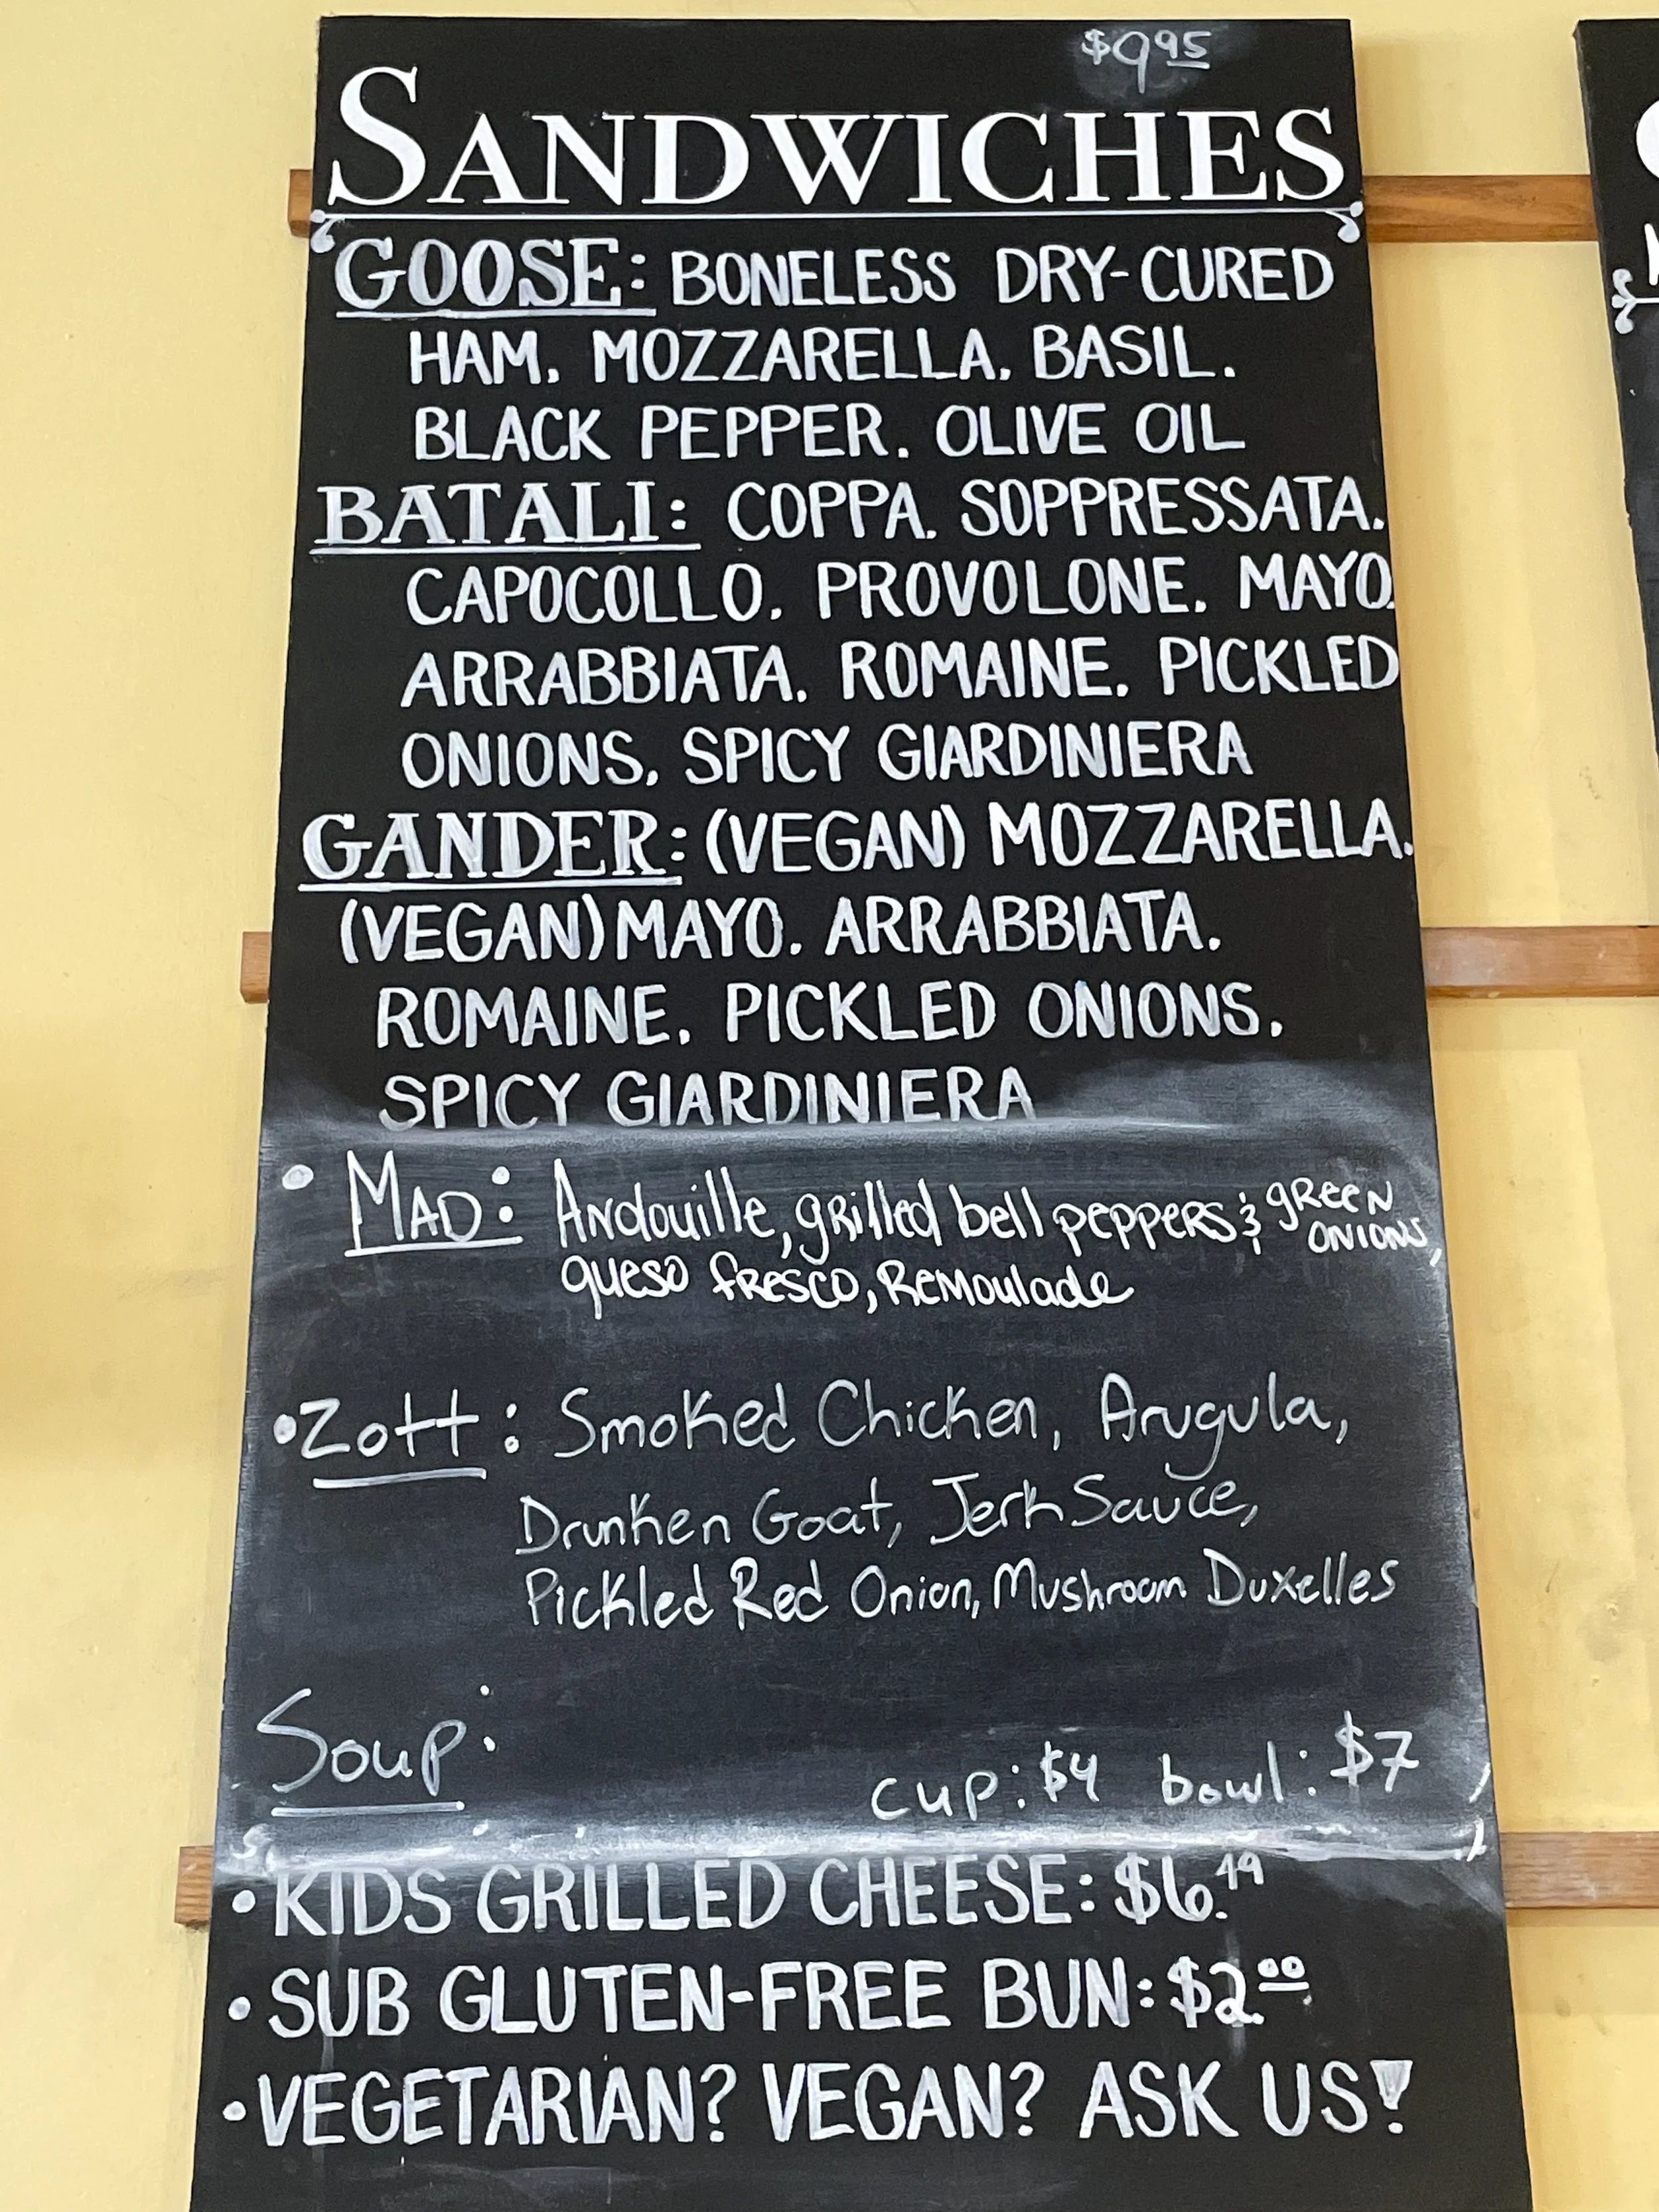 $9.95
SANDWICHES
GOOSE: BONELESS DRY-CURED
HAM. MOZZARELLA. BASIL.
BLACK PEPPER. OLIVE OIL
BATALI: COPPA. SOPPRESSATA.
CAPOCOLLO. PROVOLONE. MAYO.
ARRABBIATA. ROMAINE. PICKLED
ONIONS. SPICY GIARDINIERA
GANDER: (VEGAN) MOZZARELLA.
(VEGAN) MAYO. ARRABBIATA.
ROMAINE. PICKLED ONIONS.
SPICY GIARDINIERA
• MAD: Andouille, grilled bell peppers & green onions,
queso fresco, Remoulade
• Zott: Smoked Chicken, Arugula,
Drunken Goat, Jerk Sauce,
Pickled Red Onion, Mushroom Duxelles
Soup:
cup: $4 bowl: $7
• KIDS GRILLED CHEESE: $6.49
• SUB GLUTEN-FREE BUN: $2.00
• VEGETARIAN? VEGAN? ASK US!